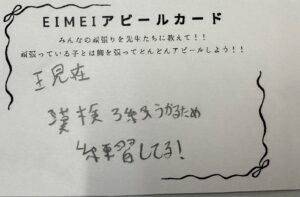 EIMEIアピールカード
みんなの頑張りを先生たちに教えて!!
頑張っている子とは胸を張ってどんどんアピールしよう!!
現在
漢検3級うかるため
練習してる!